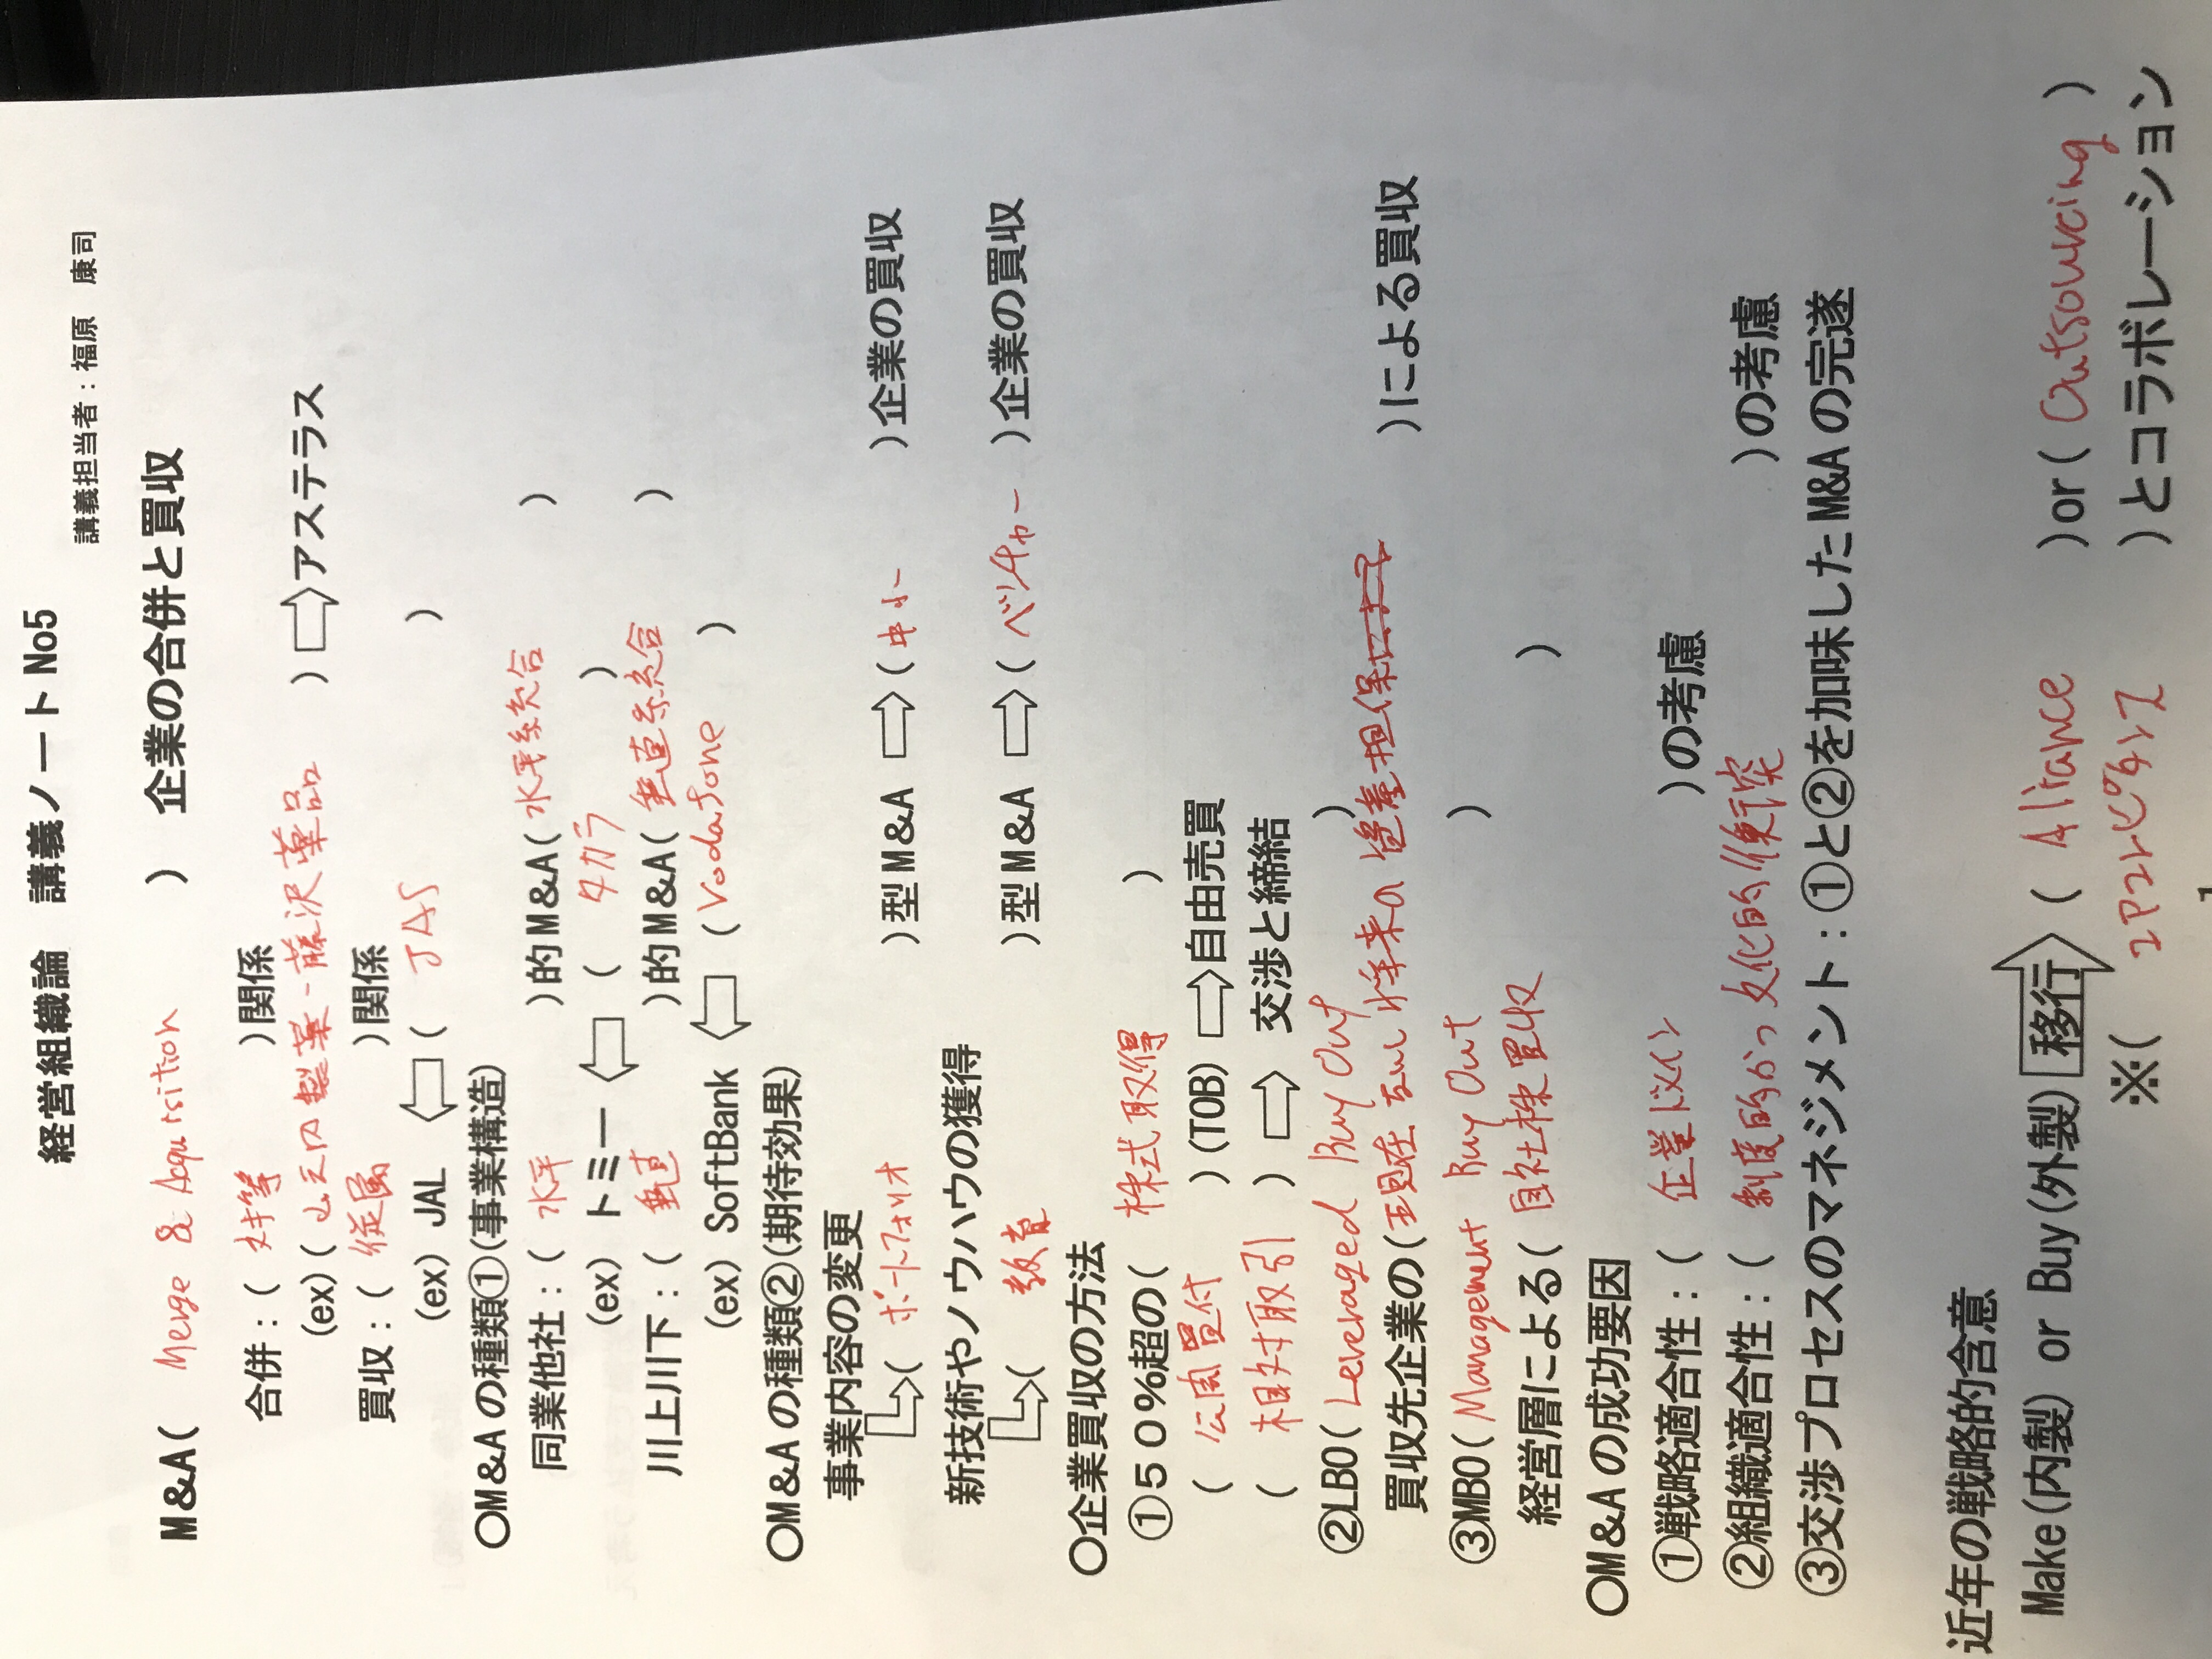 経営組織論　講義ノート No5
講義担当者：福原　康司
M&A( Merge & Acquisition ) 企業の合併と買収
合併：( 対等 )関係
(ex)( 山之内製薬-藤沢薬品 ) ⇨アステラス
買収：( 従属 )関係
(ex) JAL ⇦ ( JAS )
○M&A の種類①(事業構造)
同業他社：( 水平 )的 M&A( 水平統合 )
(ex) トミー ⇦ ( タカラ )
川上川下：( 垂直 )的 M&A( 垂直統合 )
(ex) SoftBank ⇦ ( Vodafone )
○M&A の種類②(期待効果)
事業内容の変更
( ポートフォリオ )型 M&A ⇨ ( 中小 )企業の買収
新技術やノウハウの獲得
( 教育 )型 M&A ⇨ ( ベンチャー )企業の買収
○企業買収の方法
①５０%超の( 株式取得 )
( 公開買付 )(TOB) ⇨自由売買
( 相対取引 ) ⇨ 交渉と締結
②LBO( Leveraged Buy Out )
買収先企業の(現在ないし将来の資産担保による )による買収
③MBO( Management Buy Out )
経営層による( 自社株買収 )
○M&A の成功要因
①戦略適合性：( 企業ドメイン )の考慮
②組織適合性：( 制度的かつ文化的衝突 )の考慮
③交渉プロセスのマネジメント：①と②を加味した M&A の完遂
近年の戦略的含意
Make(内製) or Buy(外製) 移行 ( Aliance )or( Outsourcing )
※( コアコンピタンス )とコラボレーション
1